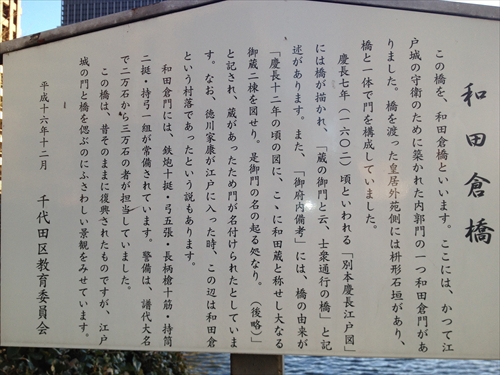 和田倉橋
この橋を、和田倉橋といいます。ここには、かつて江
戸城の守衛のために築かれた内郭門の一つ和田倉門があ
りました。橋を渡った皇居外苑側には枡形石垣があり、
橋と一体で門を構成していました。
慶長七年（一六〇二）頃といわれる「別本慶長江戸図」
には橋が描かれ、「蔵の御門と云、士衆通行の橋」と記
述があります。また、「御府内備考」には、橋の由来が
「慶長十二年の頃の図に、こゝに和田蔵と称せし大なる
御蔵二棟を図せり。是御門の名の起る処なり。（後略）」
と記され、蔵があったため門が名付けられたとしていま
す。なお、徳川家康が江戸に入った時、この辺は和田倉
という村落であったという説もあります。
和田倉門には、鉄炮十挺・弓五張・長柄槍十筋・持筒
二挺・持弓一組が常備されています。警備は、譜代大名
で二万石から三万石の者が担当していました。
この橋は、昔そのままに復興されたものですが、江戸
城の門と橋を偲ぶのにふさわしい景観をみせています。
平成十六年十二月
千代田区教育委員会